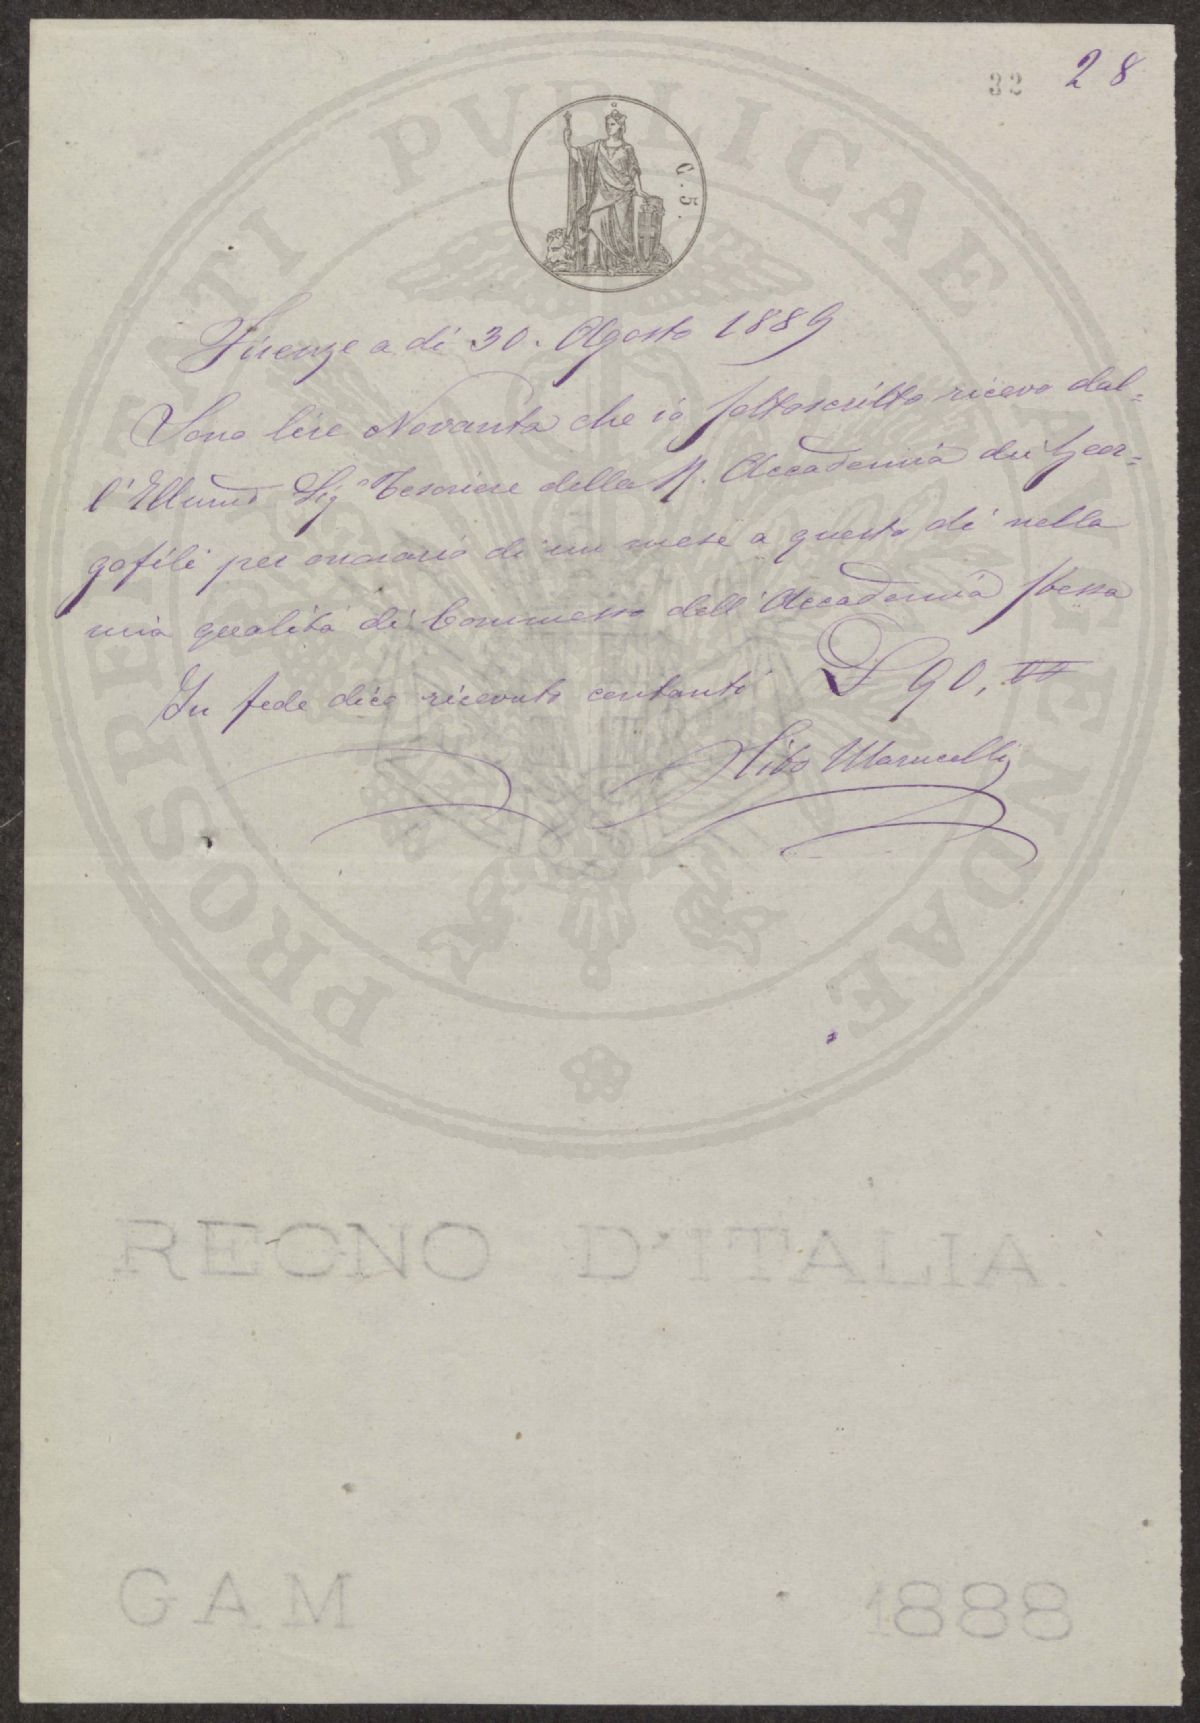 32 28
C. 5.
Firenze a di 30. Agosto 1889
Sono lire Novanta che io sottoscritto ricevo dal=
l'Ellmo Sig Tesoriere della R. Accademia dei Geor=
gofili per onorario di un mese a questo di nella
mia qualità di Commesso dell'Accademia stessa
In fede dico ricevuto contanti L 90,
Marucelli
PROSPERITATI PVBLICAE AVGENDAE
REGNO D'ITALIA
GAM 1888